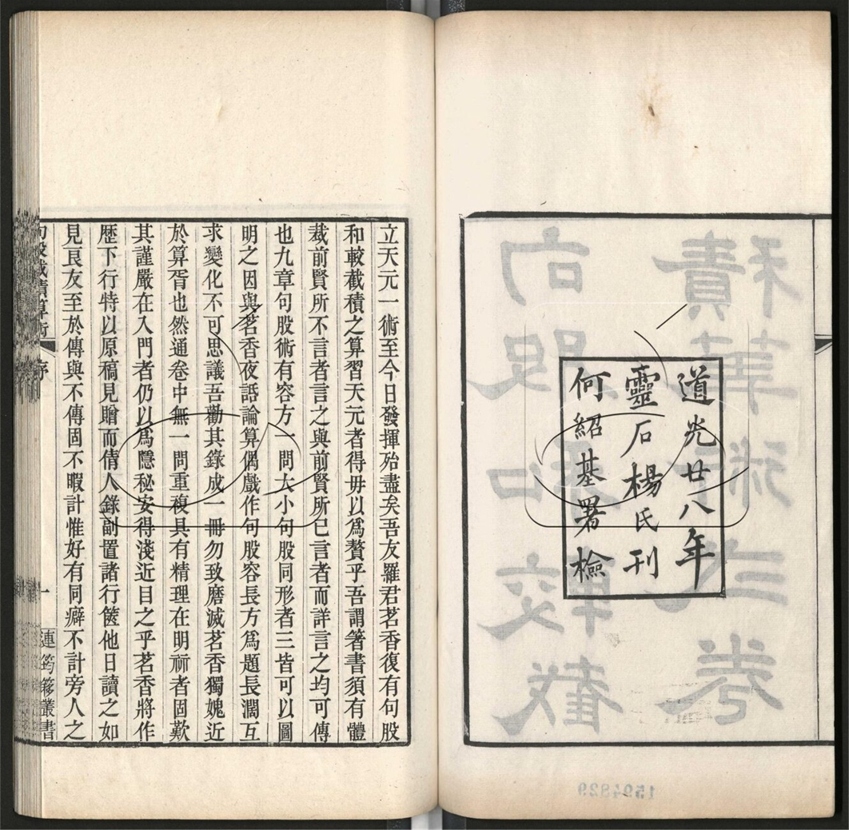 道光廿八年
靈石楊氏刊
何紹基署檢
立天元一術至今日發揮殆盡矣吾友羅君茗香復有句股
和較截積之算習天元者得毋以為贅乎吾謂箸書須有體
裁前賢所不言者言之與前賢所已言者而詳言之均可傳
也九章句股術有容方一問大小句股同形者三皆可以圖
明之因與茗香夜話論算偶戲作句股容長方為題長濶互
求變化不可思議吾勸其錄成一冊勿致磨滅茗香獨媿近
於算胥也然通卷中無一問重複具有精理在明眎者固歎
其謹嚴在入門者仍以為隱秘安得淺近目之乎茗香將作
歷下行特以原稿見贈而倩人錄副置諸行篋他日讀之如
見良友至於傳與不傳固不暇計惟好有同癖不計旁人之
句股截積算術 序 一 連筠簃叢書